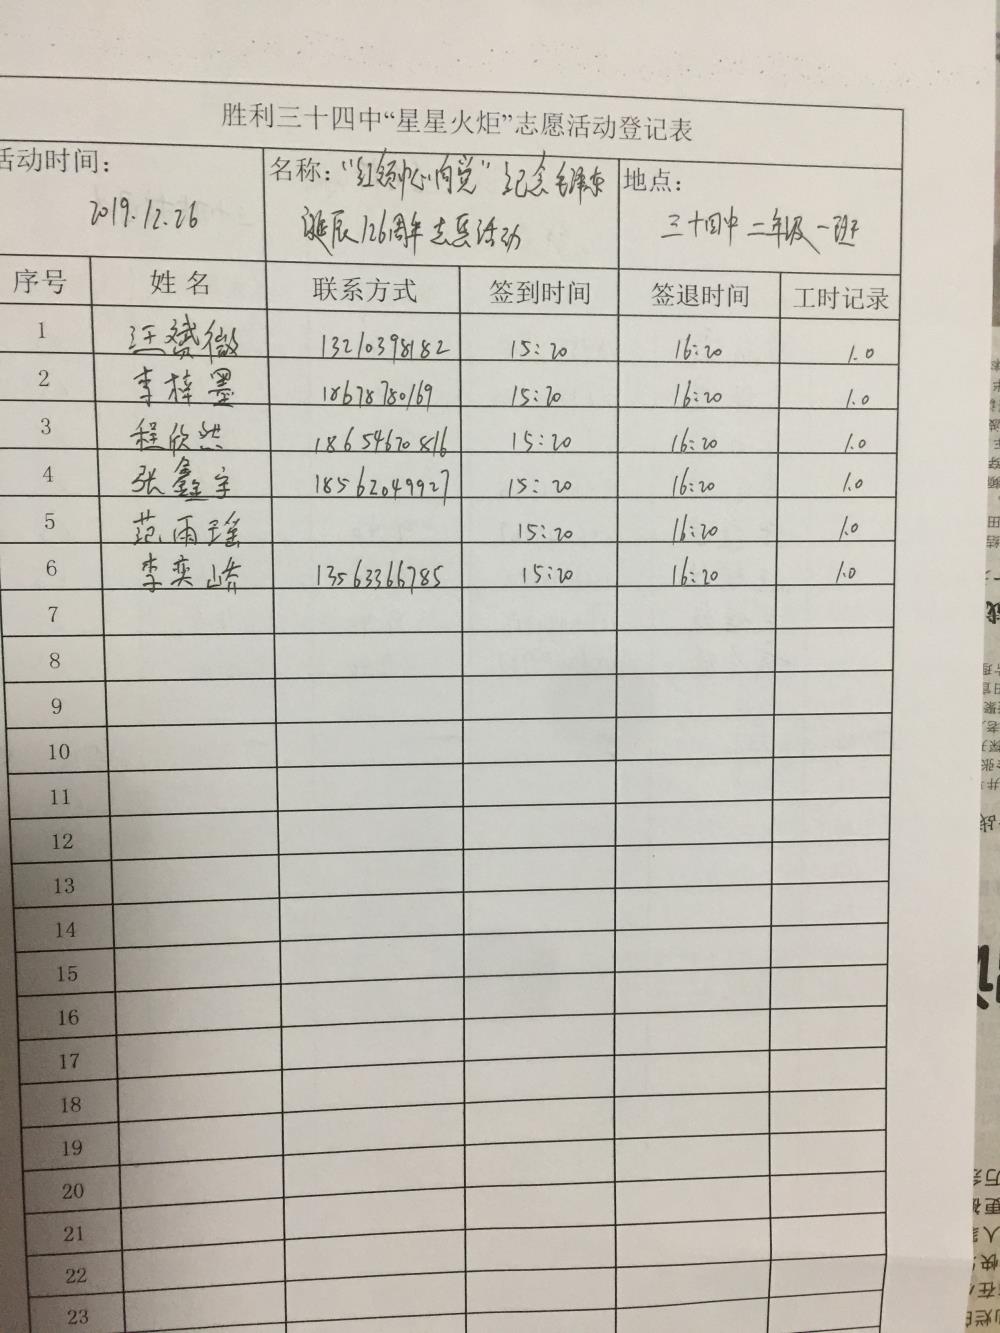 胜利三十四中“星星火炬”志愿活动登记表
活动时间： 名称：“红领巾心向党”纪念毛泽东 地点：
2019.12.26 诞辰126周年志愿活动 三十四中二年级一班
序号 姓名 联系方式 签到时间 签退时间 工时记录
1 汪赟微 13210398182 15:20 16:20 1.0
2 李梓墨 18678780169 15:20 16:20 1.0
3 程欣然 18654620816 15:20 16:20 1.0
4 张鑫宇 18562049927 15:20 16:20 1.0
5 范雨瑶 15:20 16:20 1.0
6 李奕峤 13563366785 15:20 16:20 1.0
7
8
9
10
11
12
13
14
15
16
17
18
19
20
21
22
23